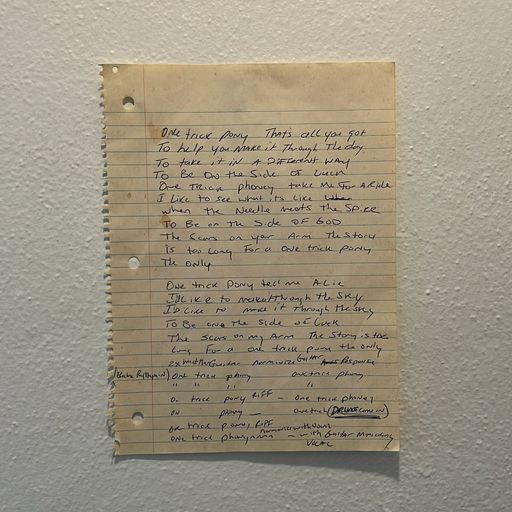 One trick pony That's all you got
To help you make it Through The day
To take it in A Different way
To Be On the Side of Luck
One Trick phoney take me For A Ride
I Like to see what its Like
when the Needle meets the Spike
To Be on The Side OF GOD
The Scars on your Arm The Story
Is too Long For a one trick pony
The only
One trick Pony tell me A Lie
I'd Like to make it Through the Sky
I'D Like to make it Through the sky
To Be on the Side of Luck
The Scars on my Arm The Story is too
Long For a one trick pony the only
2x Guitar Harmonize Guitar Response
one trick phony one trick phony
" " " "
one trick pony RIFF - one trick phoney
on phony - one trick (DRUMS come in)
one trick pony RIFF harmonies with Vocal
one trick phony - with Guitar Mimicking
VOCAL